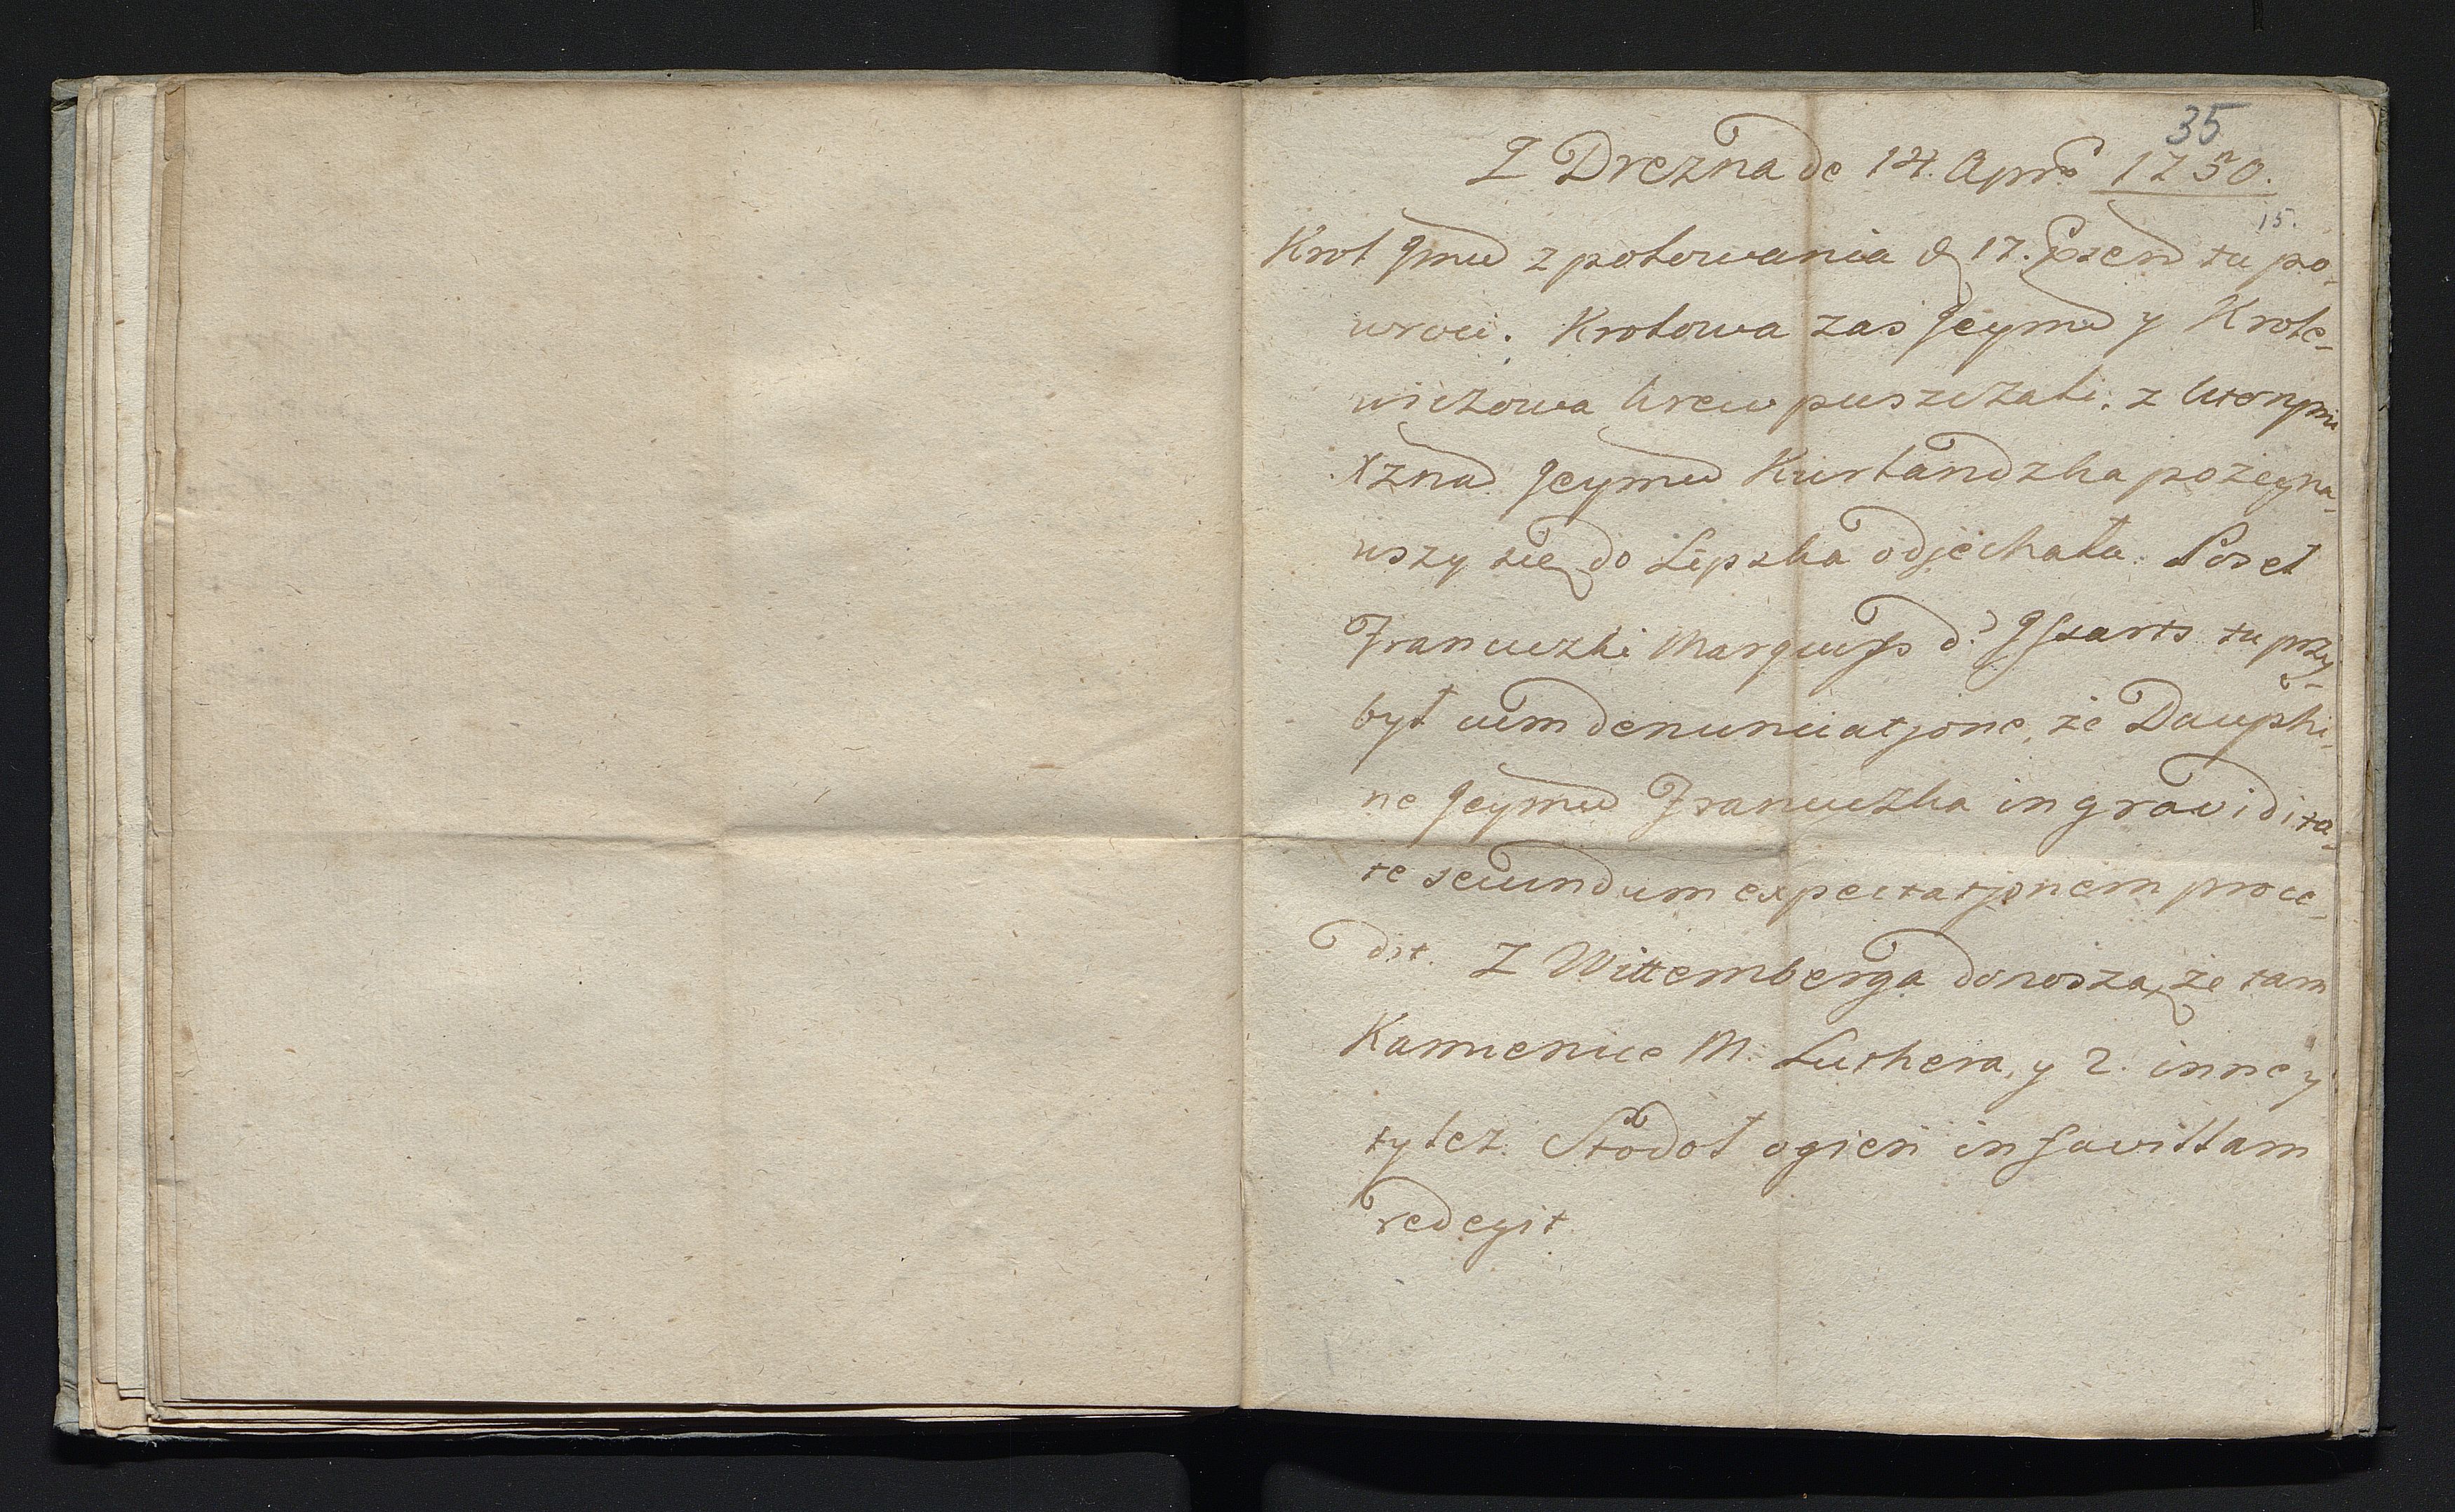 35
Z Drezna de 14. Apr. 1750.
15.
Krol Jmć z polowania d 17. Præsen tu po-
wroci. Krolowa zas Jeymć y Krole-
wiczowa krew puszczali. z ktorymi
Xzna Jeymć Kurlandzka pożegna-
wszy się do Lipska odjechała. Poseł
Francuzki Marquiss d'Issarts tu przy-
był cum denunciatjone, że Dauphi-
ne Jeymć Francuzka in gravidita-
te secundum expectatjonem proce-
dit. Z Wittemberga donoszą, że tam
Kamienice M. Luthera, y 2. inne y
tylez Stodoł ogień in favillam
redegit